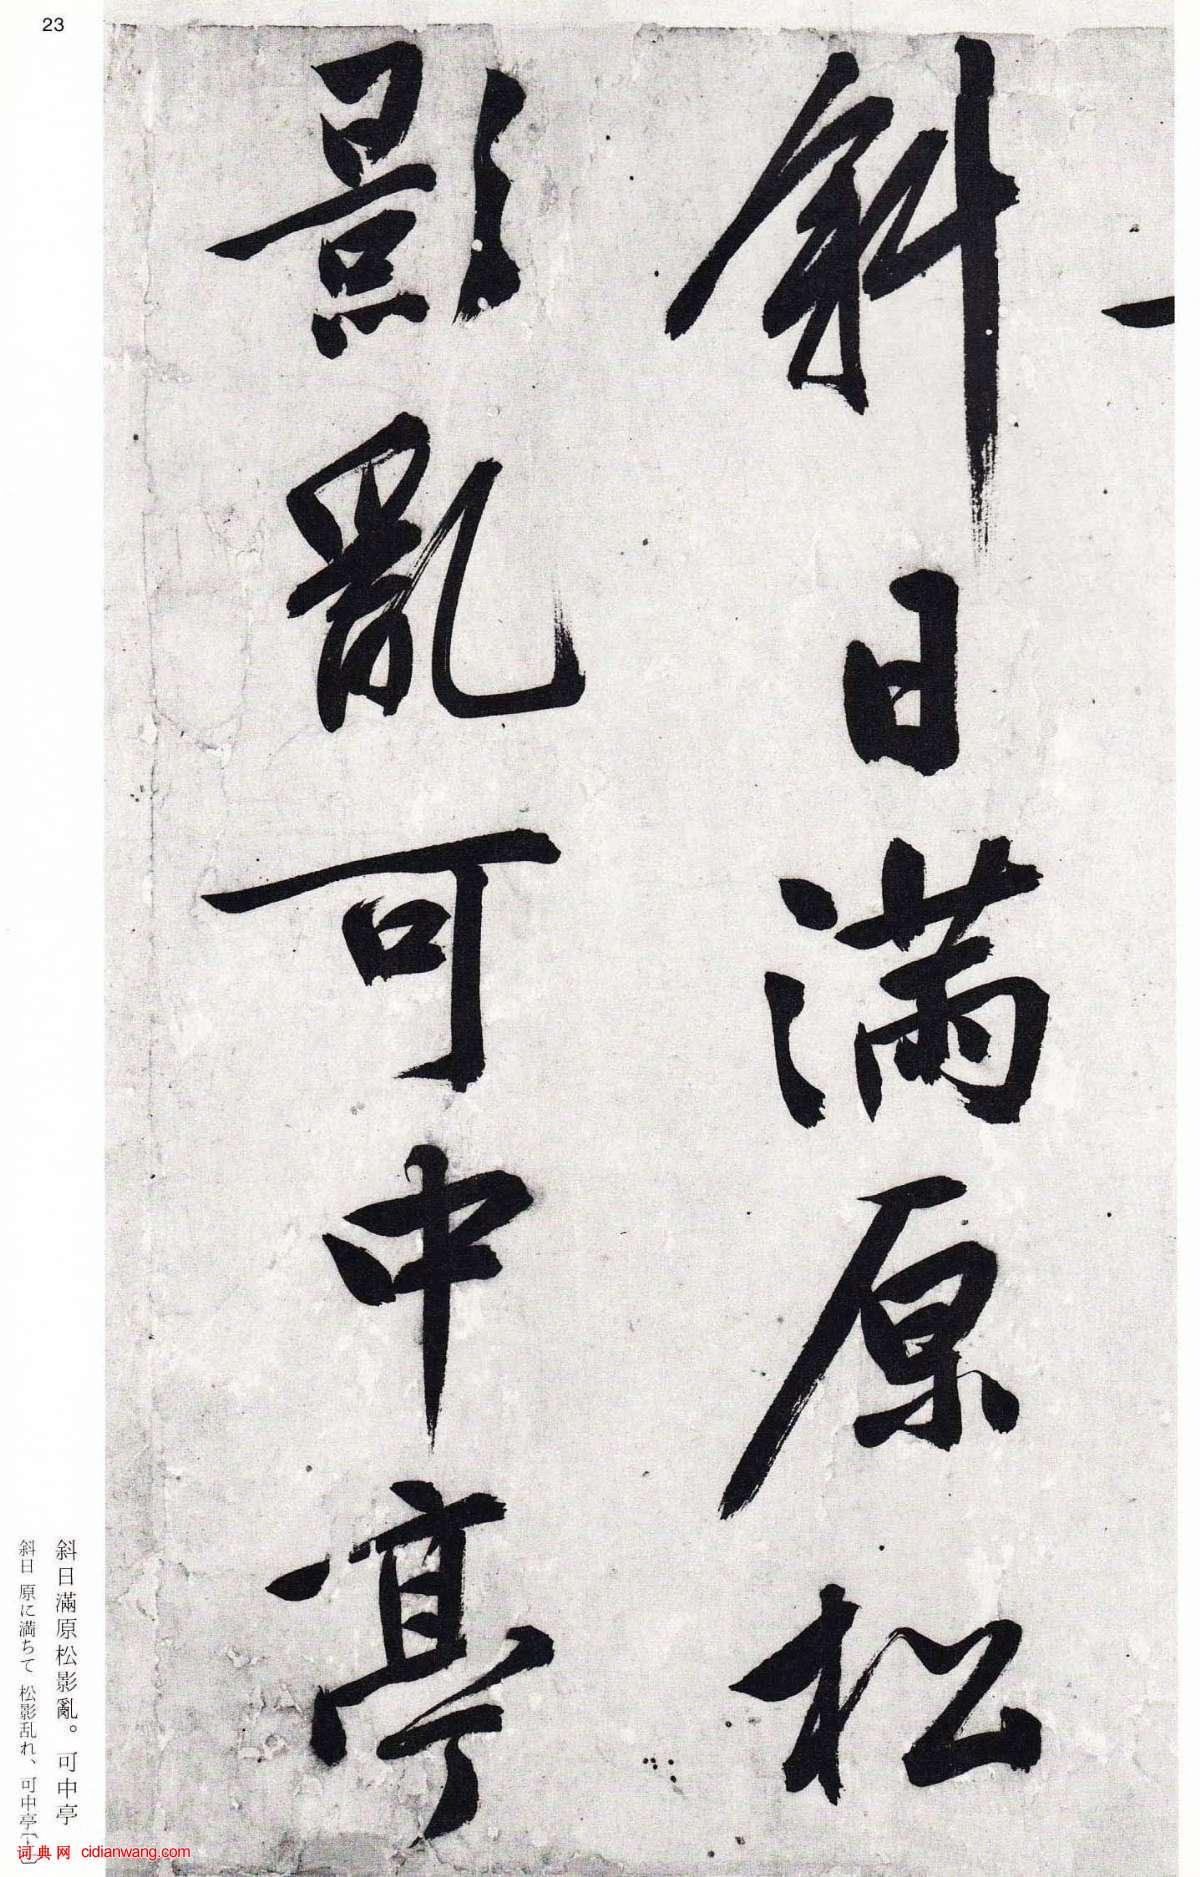 23
斜日滿原松
影亂可中亭
斜日滿原松影亂。可中亭
斜日 原に満ちて 松影乱れ、可中亭
词典网 cidianwang.com